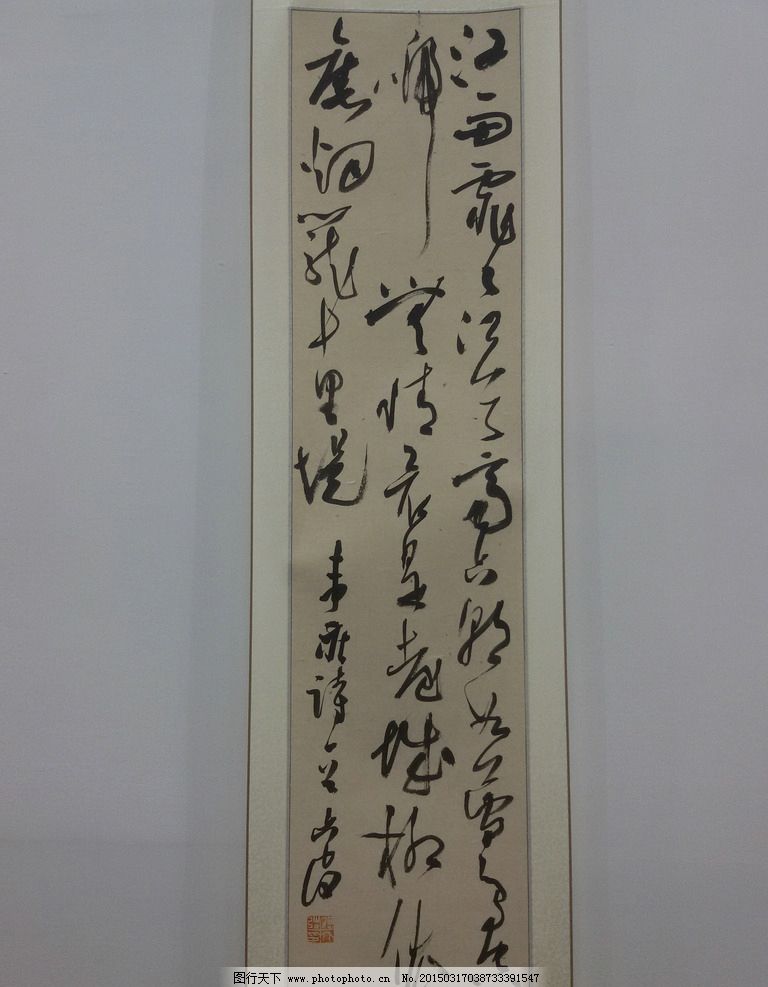 江雨霏〻江草齊六朝如夢鳥空
啼無情最是臺城柳依
舊烟籠十里堤 韋莊詩
图行天下 www.photophoto.cn No.20150317038733391547